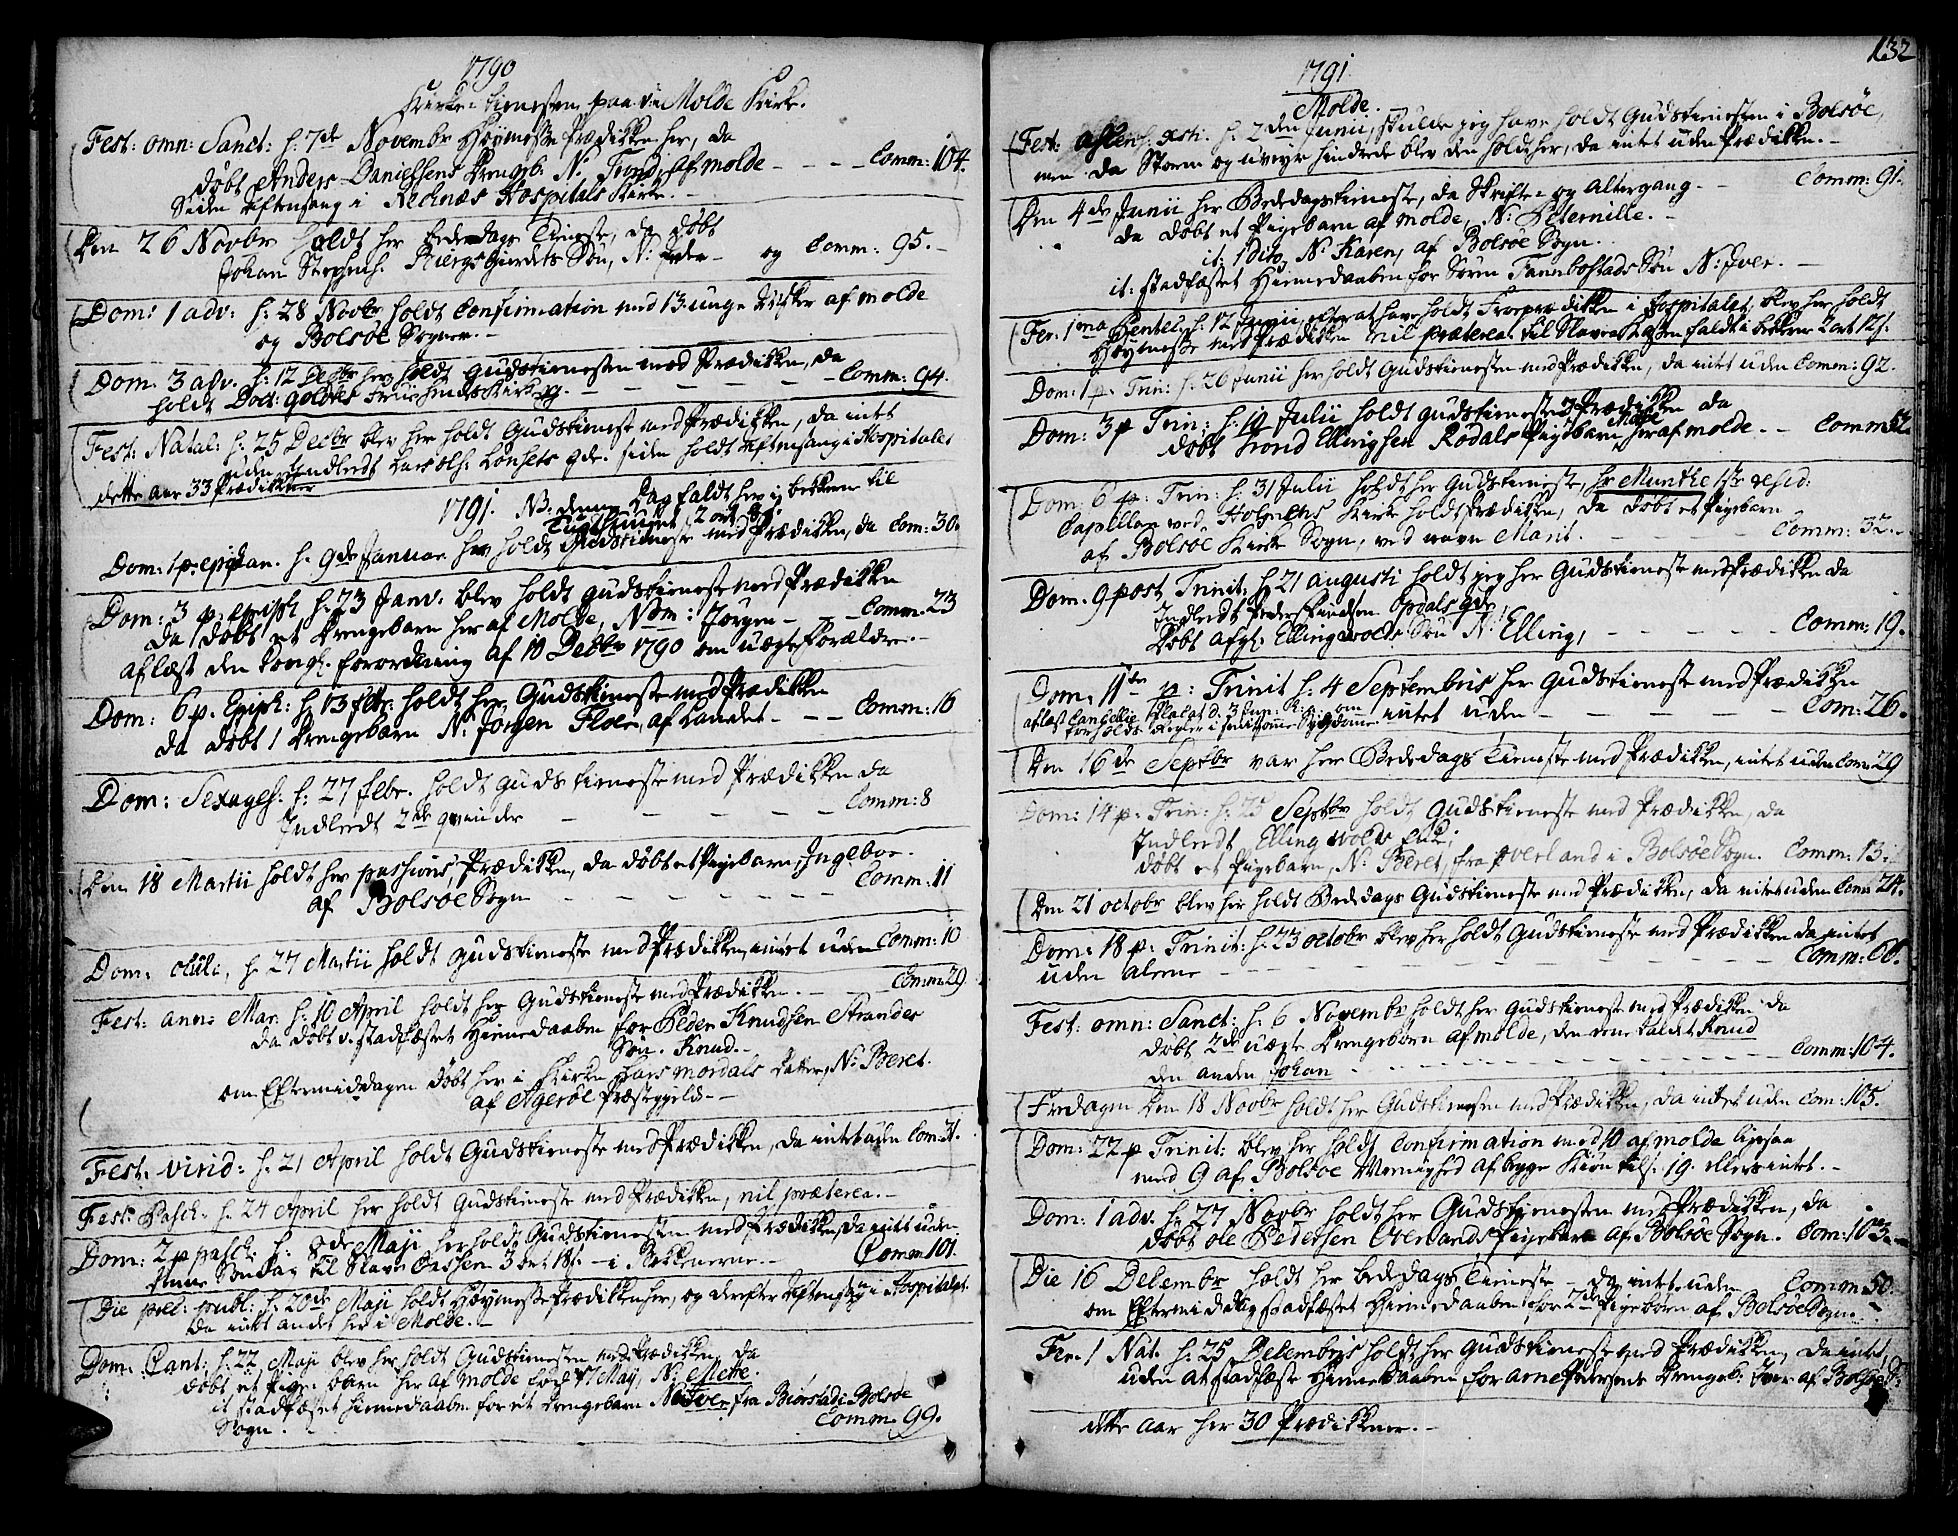 1790
Kirke-tienesten paa v: Molde Kirke.
Fest: omn: Sanct: h: 7de Novembr Høymesse Prædikken her, da
døbt Anders Danielsens Drengeb. N. Trond, af molde - - - Comm: 104.
Siden Aftensang i Reknæs Hospitals Kirke. -
Den 26 Novbr holdt her bededags Tieneste, da døbt
Johan Stephens. Biergsgierdets Søn, N: Peder - og Comm: 95. -
Dom: 1 adv: h: 28 Novbr holdt Confirmation med 13 unge af molde
og Bolsøe Sogner. -
Dom: 3 adv. h: 12 Decbr her holdt Gudstienesten med Prædikken, da
holdt Doct: - - - - - Comm: 94.
Fest: Natal: h: 25 Decbr blev her holdt Gudstieneste med Prædikken, da intet
uden Indledt Lars Ols: Lønsets qde: siden holdt Aftensang i Hospitalet
dette aar 33 Prædikkener
1791. NB. denne Dag faldt her i bekken til
Tugthuuset, 2 ort
Dom: 1 p. epiphan. h. 9de Januar her holdt Gudstieneste med Prædikken, da Com: 30.
Dom: 3 p. epiph h: 23 Janv. blev holdt Gudstieneste med Prædikken
da døbt et Drengebarn her af Molde, Nom: Jørgen - - - Comm: 23
aflæst den Kongl. forordning af 10 Decbr 1790 om uægte Forældre. -
Dom: 6 p. Epiph: h: 13 febr. holdt her Gudstieneste med Prædikken
da døbt 1 Drengebarn N: Jørgen Floer, af Landet - - - Comm: 16
Dom: Sexages: h: 27 febr. holdt Gudstieneste med Prædikken da
Indledt 2de qvinder - - - - - Comm: 8
Den 18 Martii holdt her passions Prædikken, da døbt et Pigebarn, Ingebor.
af Bolsøe Sogn - - - - - - Comm: 11
Dom: Oculi, h. 27 Martii holdt Gudstieneste med Prædikken, intet uden Comm: 10
Fest: ann: Mar. h: 10 April holdt her Gudstieneste med Prædikken. - Comm: 29
da døbt v. stadfæstet Hiemedaaben for Peder Knudsen Strandes
Søn. Knud. -
om Eftermiddagen døbt her i Kirken Lars mordals datter, N: Beret.
af Agerøe Præstegield. -
Fest: virid: h: 21 April holdt Gudstieneste med Prædikken, da intet uden Com: 31.
Fest: Pasch: h. 24 April her holdt Gudstieneste med Prædikken, nil præterea. -
Dom: 2 p pasch: h: 8de Maji her holdt Gudstienesten med Prædikken, da intet uden
denne Søndag til Slave Cassen 3 ort 18 s. - i Bekkenerne. - Comm: 101.
Die prec: publ: h: 20de Maji holdt Høymesse Prædikken her, og derefter Aftensang i Hospitalet.
da intet andet her i Molde. -
Dom: Cant: h: 22 Maji blev her holdt Gudstienesten med Prædikken, da
døbt et Pige-barn her af molde fød 17 May, N: Mette.
it: stadfæstet hiemedaaben for et Drengebarn N: Iver fra Biørstad i Bolsøe
Sogn. - Comm: 99.
132
1791
Molde.
Fest: Ascens: Xsti. h. 2den Junii, skulde jeg have holdt Gudstienesten i Bolsøe,
men da Storm og uveyr hindrede blev den holdt her, da intet uden Prædikken. -
Den 4de Junii her Bededagstieneste, da Skrifte- og Altergang. - - Comm: 91.
da døbt et Pigebarn af molde, N: Peternille. -
it: 1 dito, N: Karen, af Bolsøe Sogn. -
it: stadfæstet Hiemedaaben for Søren Tannbostads Søn N: Iver. -
Fer: 1ma Pentec: h. 12 Junii, efter at have holdt Froprædikken i Hospitalet, blev her holdt
Høymesse med Prædikken nil præterea. til Slaverne faldt i bekkene 2 ort 12 s.
Dom: 1 p. Trin: h. 26 Junii her holdt Gudstienesten med Prædikken, da intet uden Comm: 92.
Dom: 3 p Trin: h. 10 Julii holdt Gudstieneste Prædikken da
døbt Trond Ellingsen Rødals Pigebarn her af molde. - - Comm:
Dom: 6 p: Trin: h: 31 Julii holdt her Gudstieneste, hr Munthe 1ste resid:
Capellan ved Holmens Kirke holdt Prædikken, da døbt et Pigebarn
af Bolsøe Kirke Sogn, ved navn Marit. - - - - - Comm: 32. -
Dom: 9 post Trinit: h: 21 augusti holdt jeg her Gudstieneste med Prædikken da
Indledt Peder Knudsen Opdals qde,
Døbt afg: Elling wolds Søn N: Elling, - - - - - Comm: 19.
Dom: 11te p: Trinit h: 4 Septembris her Gudstieneste med Prædikken
aflæst Cancellie Placat d: 3 Jun: om
forholds Regler i smitsomme Sygdomme intet uden - - - - Com: 26.
Den 16de Septbr var her Bededags Tieneste med Prædikken, intet uden Com: 29
Dom: 14 p. Trin: h: 25 Septbr holdt Gudstieneste med Prædikken, da
Indledt Elling wolds Enke;
døbt et Pigebarn, N: Beret, fra Averland i Bolsøe Sogn. Comm: 13.
Den 21 octobr blev her holdt Bededags Gudstieneste med Prædikken, da intet uden Com: 24.
Dom: 18 p: Trinit: h: 23 octobr blev her holdt Gudstieneste med Prædikken da intet
uden alene - - - - - - - - - - Comm: 60.
Fest: omn: Sanct: h: 6 Novembr holdt her Gudstieneste med Prædikken da
døbt 2de uægte Drengebørn af molde, den eene kaldet Knud
den anden Johan - - - - - - - - Comm: 104.
Fredagen Den 18 Novbr holdt her Gudstienesten med Prædikken, da intet uden Com: 105.
Dom: 22 p Trinit: blev her holdt Confirmation med 10 af molde ligesaa
med 9 af Bolsøe Meenighed af begge Kiøn tils: 19. ellers intet. -
Dom: 1 adv. h: 27 Novbr holdt her Gudstienesten med Prædikken, da
døbt ole Pedersen Overlands Pigebarn af Bolsøe Sogn. Com: 103. -
Die 16 Decembr holdt her bededags Tieneste - da intet uden Comm: 50.
om Eftermiddag stadfæstet Hiemedaaben for 2de Pigebørn af Bolsøe Sogn. -
Fer: 1 Nat: h: 25 Decembris holdt her Gudstieneste med Prædikken, da intet,
uden at stadfæste Hiemedaaben for Arne Pedersens Drengeb: Iver af Bolsøe S:
dette aar her 30 Prædikkener. -